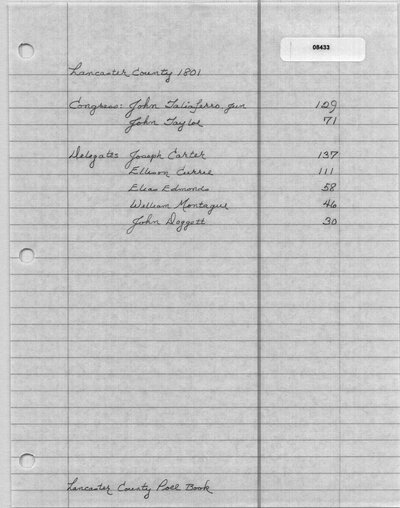 08433
Lancaster County 1801
Congress: John Taliaferro Jun 129
John Tayloe 71
Delegates Joseph Carter 137
Ellison Currie 111
Elias Edmonds 58
William Montague 46
John Doggett 30
Lancaster County Poll Book